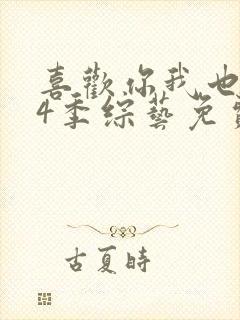 喜歡你我也
4季綜藝免
古夏時